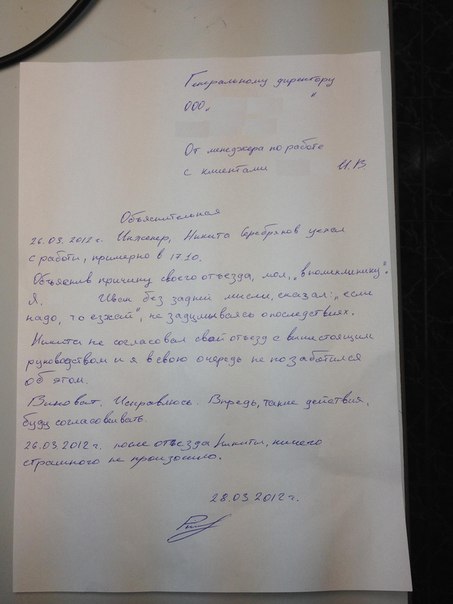 Генеральному директору
ООО „ "
От менеджера по работе
с клиентами И.В.
Объяснительная
26.03.2012 г. Инженер, Никита Серебряков уехал
с работы, примерно в 17.10.
Объяснив причину своего отъезда, мол, „в поликлинику".
Я, Иван без задней мысли, сказал: „если
надо, то езжай", не задумываясь о последствиях.
Никита не согласовал свой отъезд с вышестоящим
руководством и я в свою очередь не позаботился
об этом.
Виноват. Исправлюсь. Впредь, такие действия,
буду согласовывать.
26.03.2012 г. после отъезда Никиты, ничего
страшного не произошло.
28.03.2012 г.